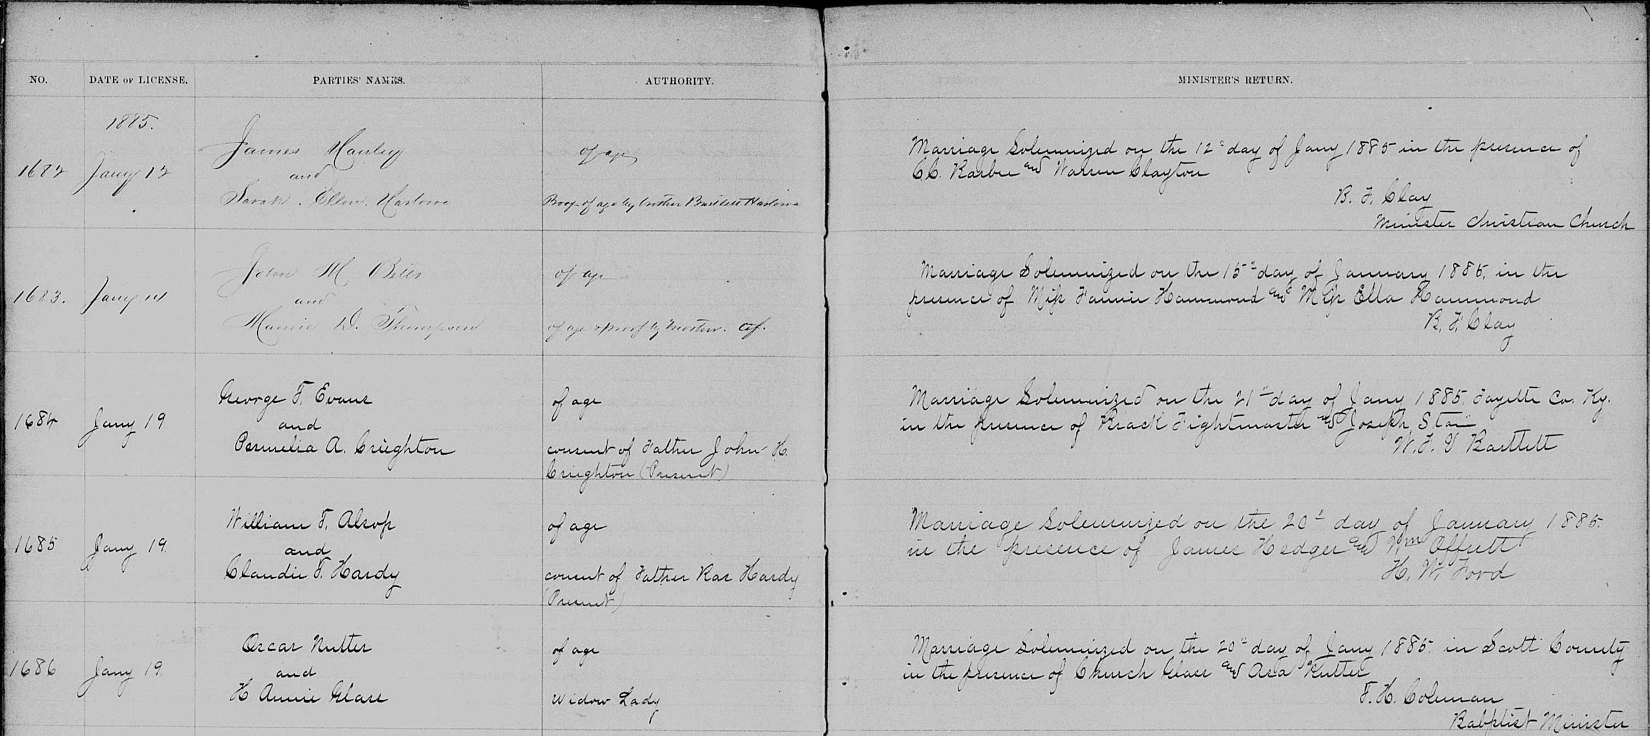 NO. DATE OF LICENSE. PARTIES' NAMES. AUTHORITY. MINISTER'S RETURN.
1885.
1682 Jany 12
James Hanley
and
Sarah Ellen Harlowe
of age
Proof of age by brother Bartlett Harlowe
Marriage Solemnized on the 12th day of Jany 1885 in the presence of
C.C. and Warren Clayton
B. F. Clay
Minister Christian Church
1683. Jany 14
John M
and
Mamie D. Thompson
of age
of age proof by
Marriage Solemnized on the 15th day of January 1885, in the
presence of Miss Fannie Hammond and Miss Ella Hammond
B. F. Clay
1684 Jany 19
George F. Evans
and
Permelia A. Crieghton
of age
consent of Father John H.
Crieghton (Present)
Marriage Solemnized on the 21st day of Jany 1885 Fayette Co. Ky.
in the presence of Brack Fightmaster and Joseph
W. F. T Bartlett
1685 Jany 19
William F. Alsop
and
Claudie F. Hardy
of age
consent of Father Hardy
(Present)
Marriage Solemnized on the 20th day of January 1885
in the presence of James Hedger and Wm Offutt
H. W. Ford
1686 Jany 19
Oscar Nutter
and
H Annie Glass
of age
Widow Lady
Marriage Solemnized on the 20th day of Jany 1885 in Scott County
in the presence of Church Glass and Asa Nutter
F. H. Coleman
Babptist Minister